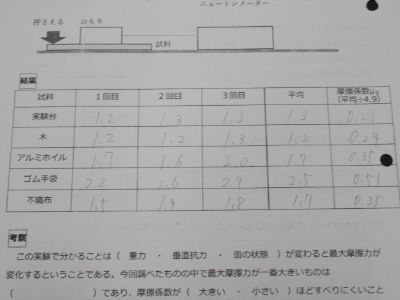 ニュートンメーター
押さえる おもり
試料
結果
試料 1回目 2回目 3回目 平均 摩擦係数μ₀
(平均÷4.9)
実験台 1.2 1.3 1.3 1.3 0.27
木 1.2 1.2 1.3 1.2 0.24
アルミホイル 1.7 1.6 2.0 1.7 0.35
ゴム手袋 2.2 2.6 2.9 2.5 0.51
不織布 1.5 1.9 1.8 1.7 0.35
考察
この実験で分かることは( 重力 ・ 垂直抗力 ・ 面の状態 )が変わると最大摩擦力が
変化するということである。今回調べたものの中で最大摩擦力が一番大きいものは
( )であり、摩擦係数が( 大きい ・ 小さい )ほどすべりにくいこと